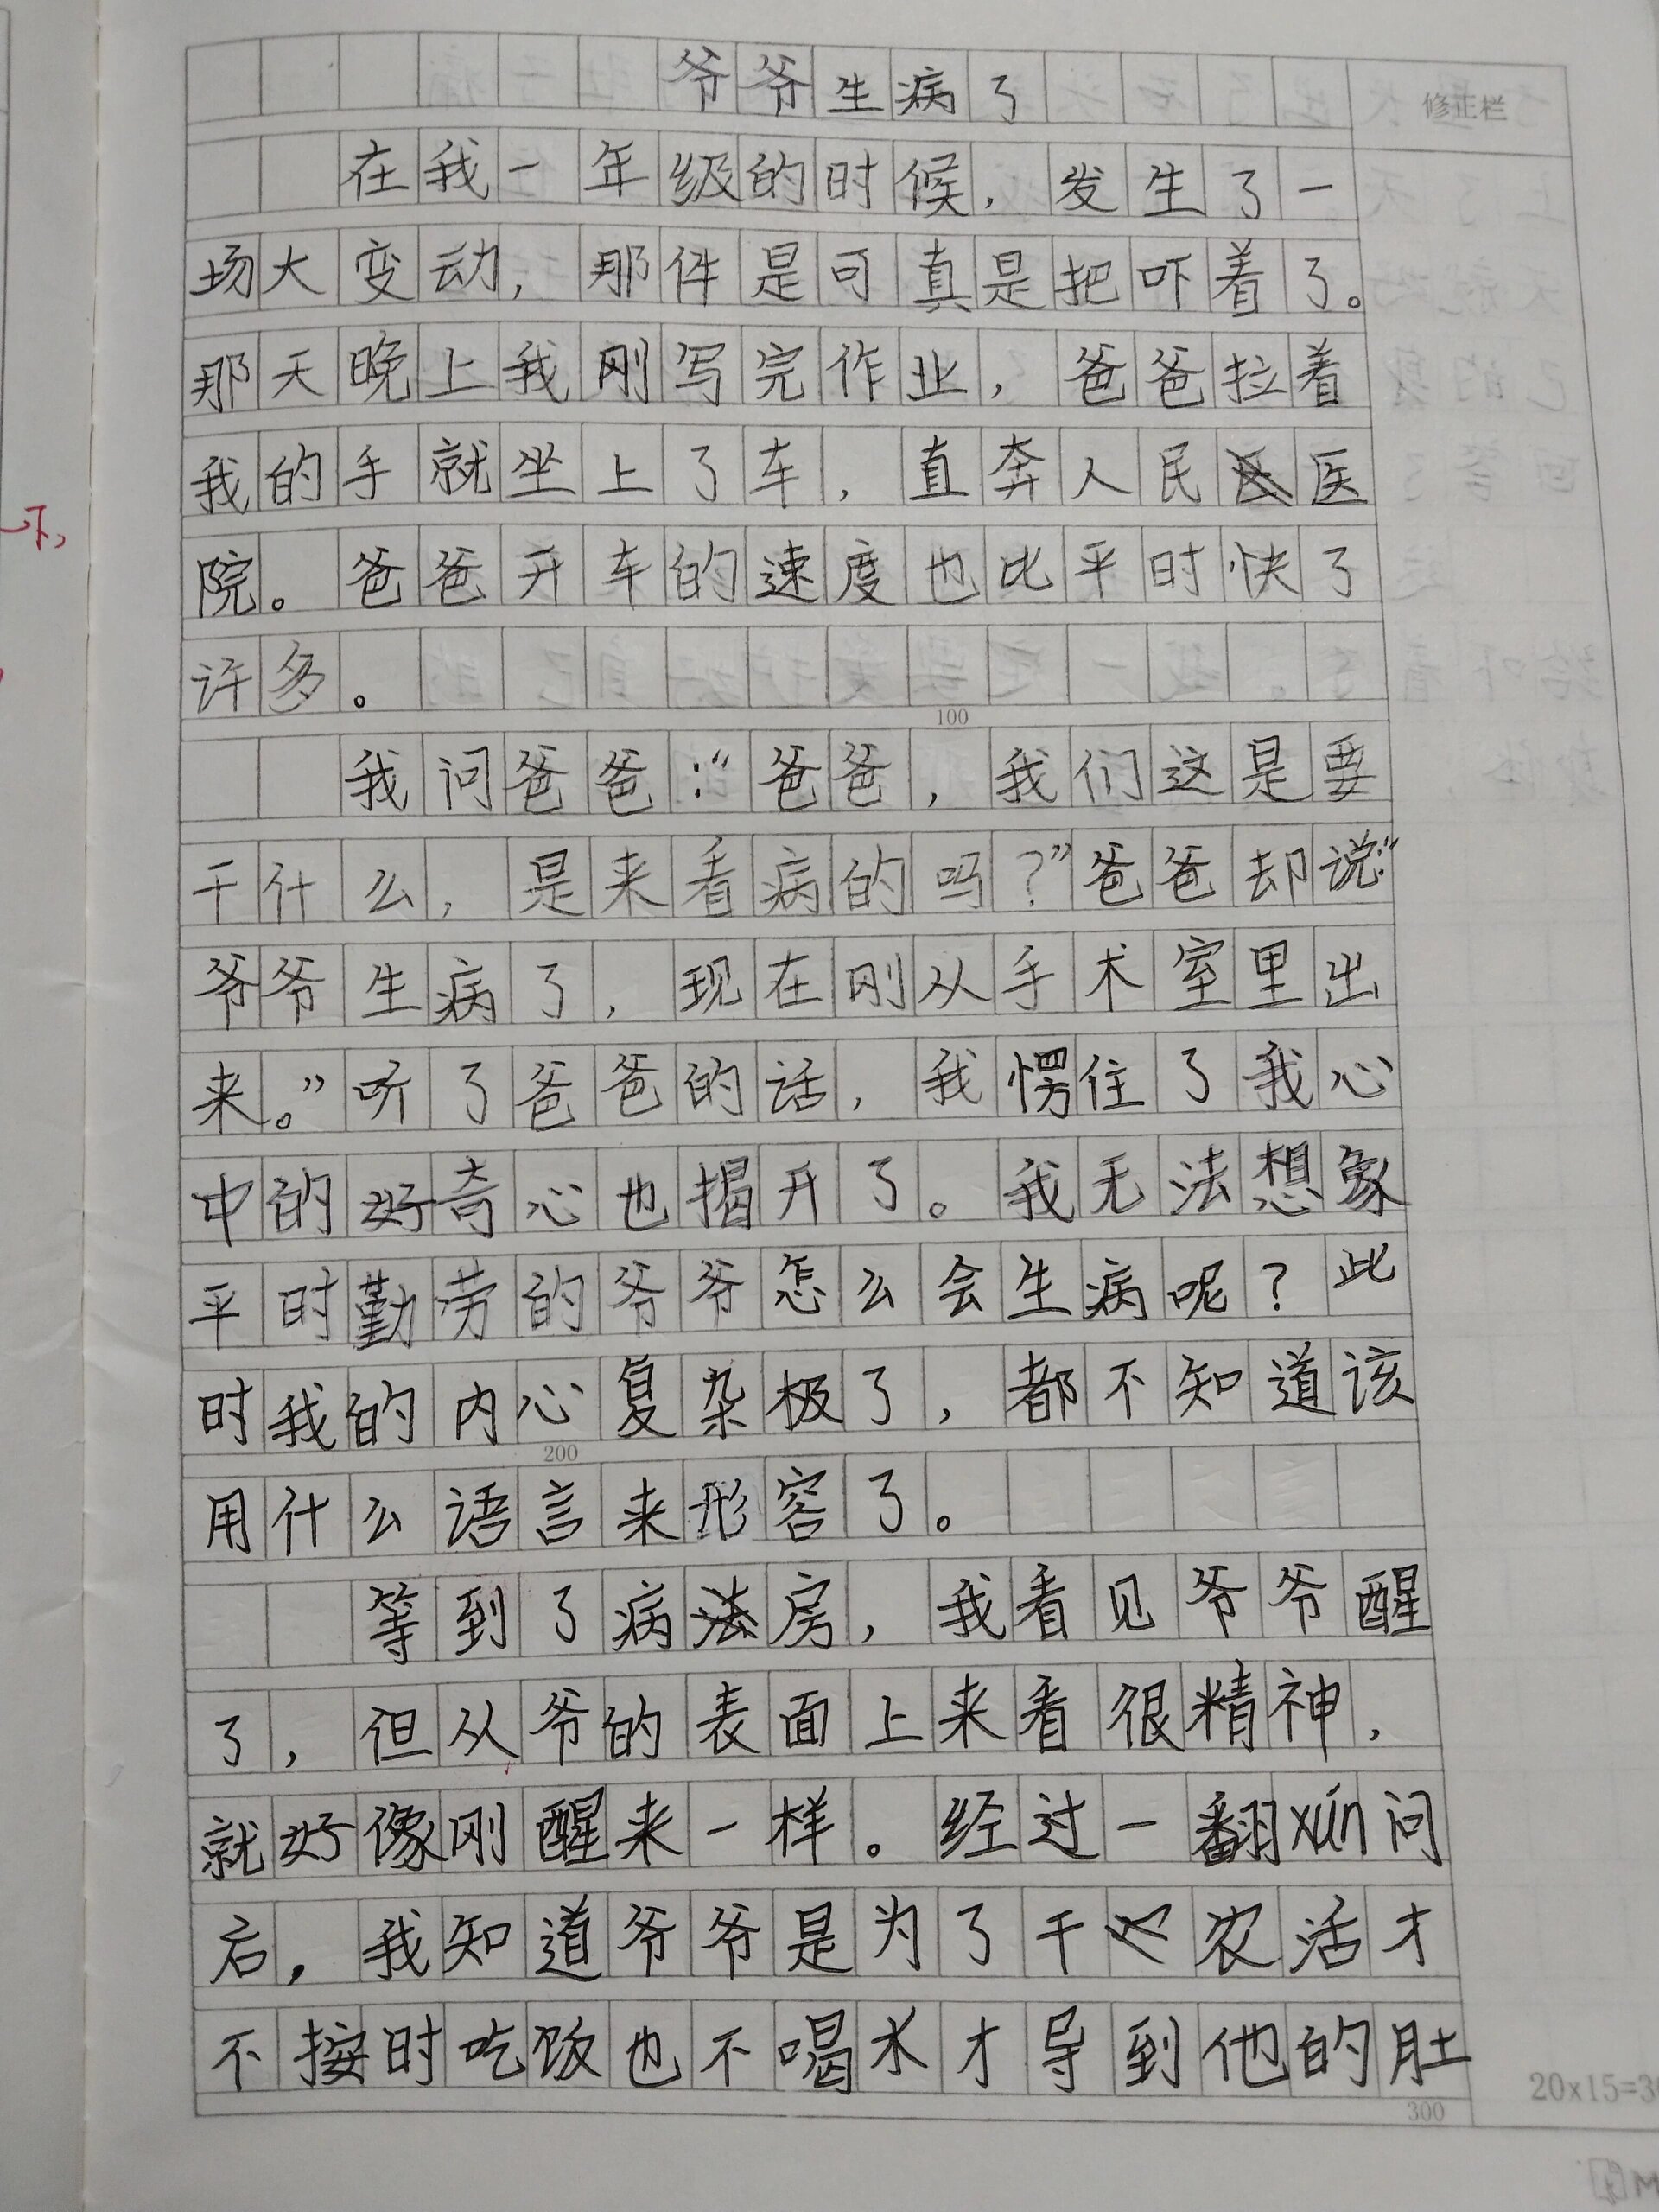 爷爷生病了
修正栏
在我一年级的时候，发生了一
场大变动，那件是可真是把吓着了。
那天晚上我刚写完作业，爸爸拉着
我的手就坐上了车，直奔人民医
院。爸爸开车的速度也比平时快了
许多。
100
我问爸爸：“爸爸，我们这是要
干什么，是来看病的吗？”爸爸却说：“
爷爷生病了，现在刚从手术室里出
来。”听了爸爸的话，我愣住了我心
中的好奇心也揭开了。我无法想象
平时勤劳的爷爷怎么会生病呢？此
时我的内心复杂极了，都不知道该
200
用什么语言来形容了。
等到了病房，我看见爷爷醒
了，但从爷的表面上来看很精神，
就好像刚醒来一样。经过一翻xún问
后，我知道爷爷是为了干农活才
不按时吃饭也不喝水才导到他的肚
300
20x15=3
下，